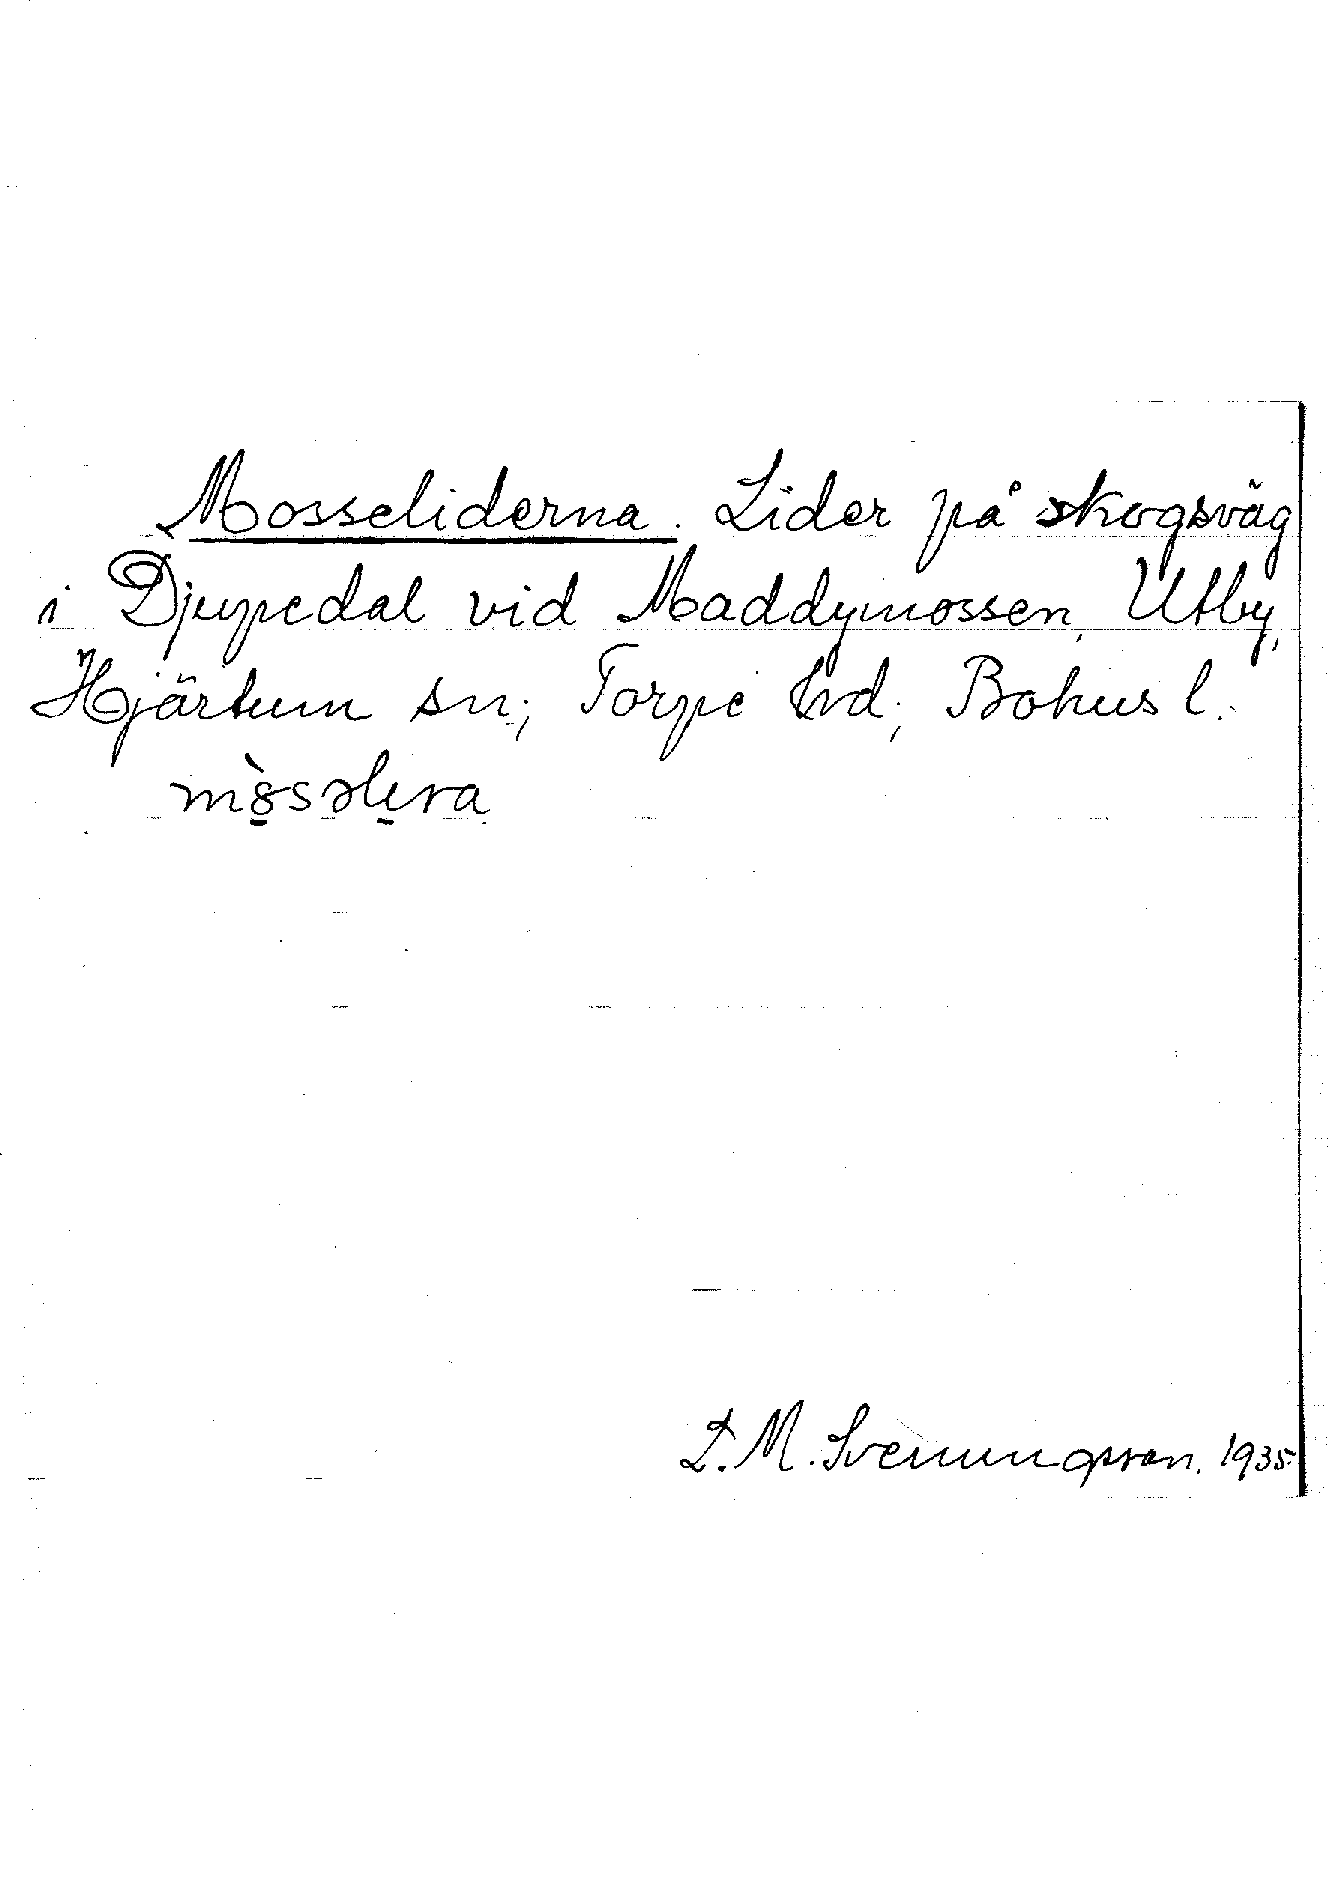 Mosseliderna. Lider på skogsväg
i Djupedal vid Maddymossen, Utby,
Hjärtum sn; Torpe hd; Bohus l.
D. M. Svenungsson. 1935.